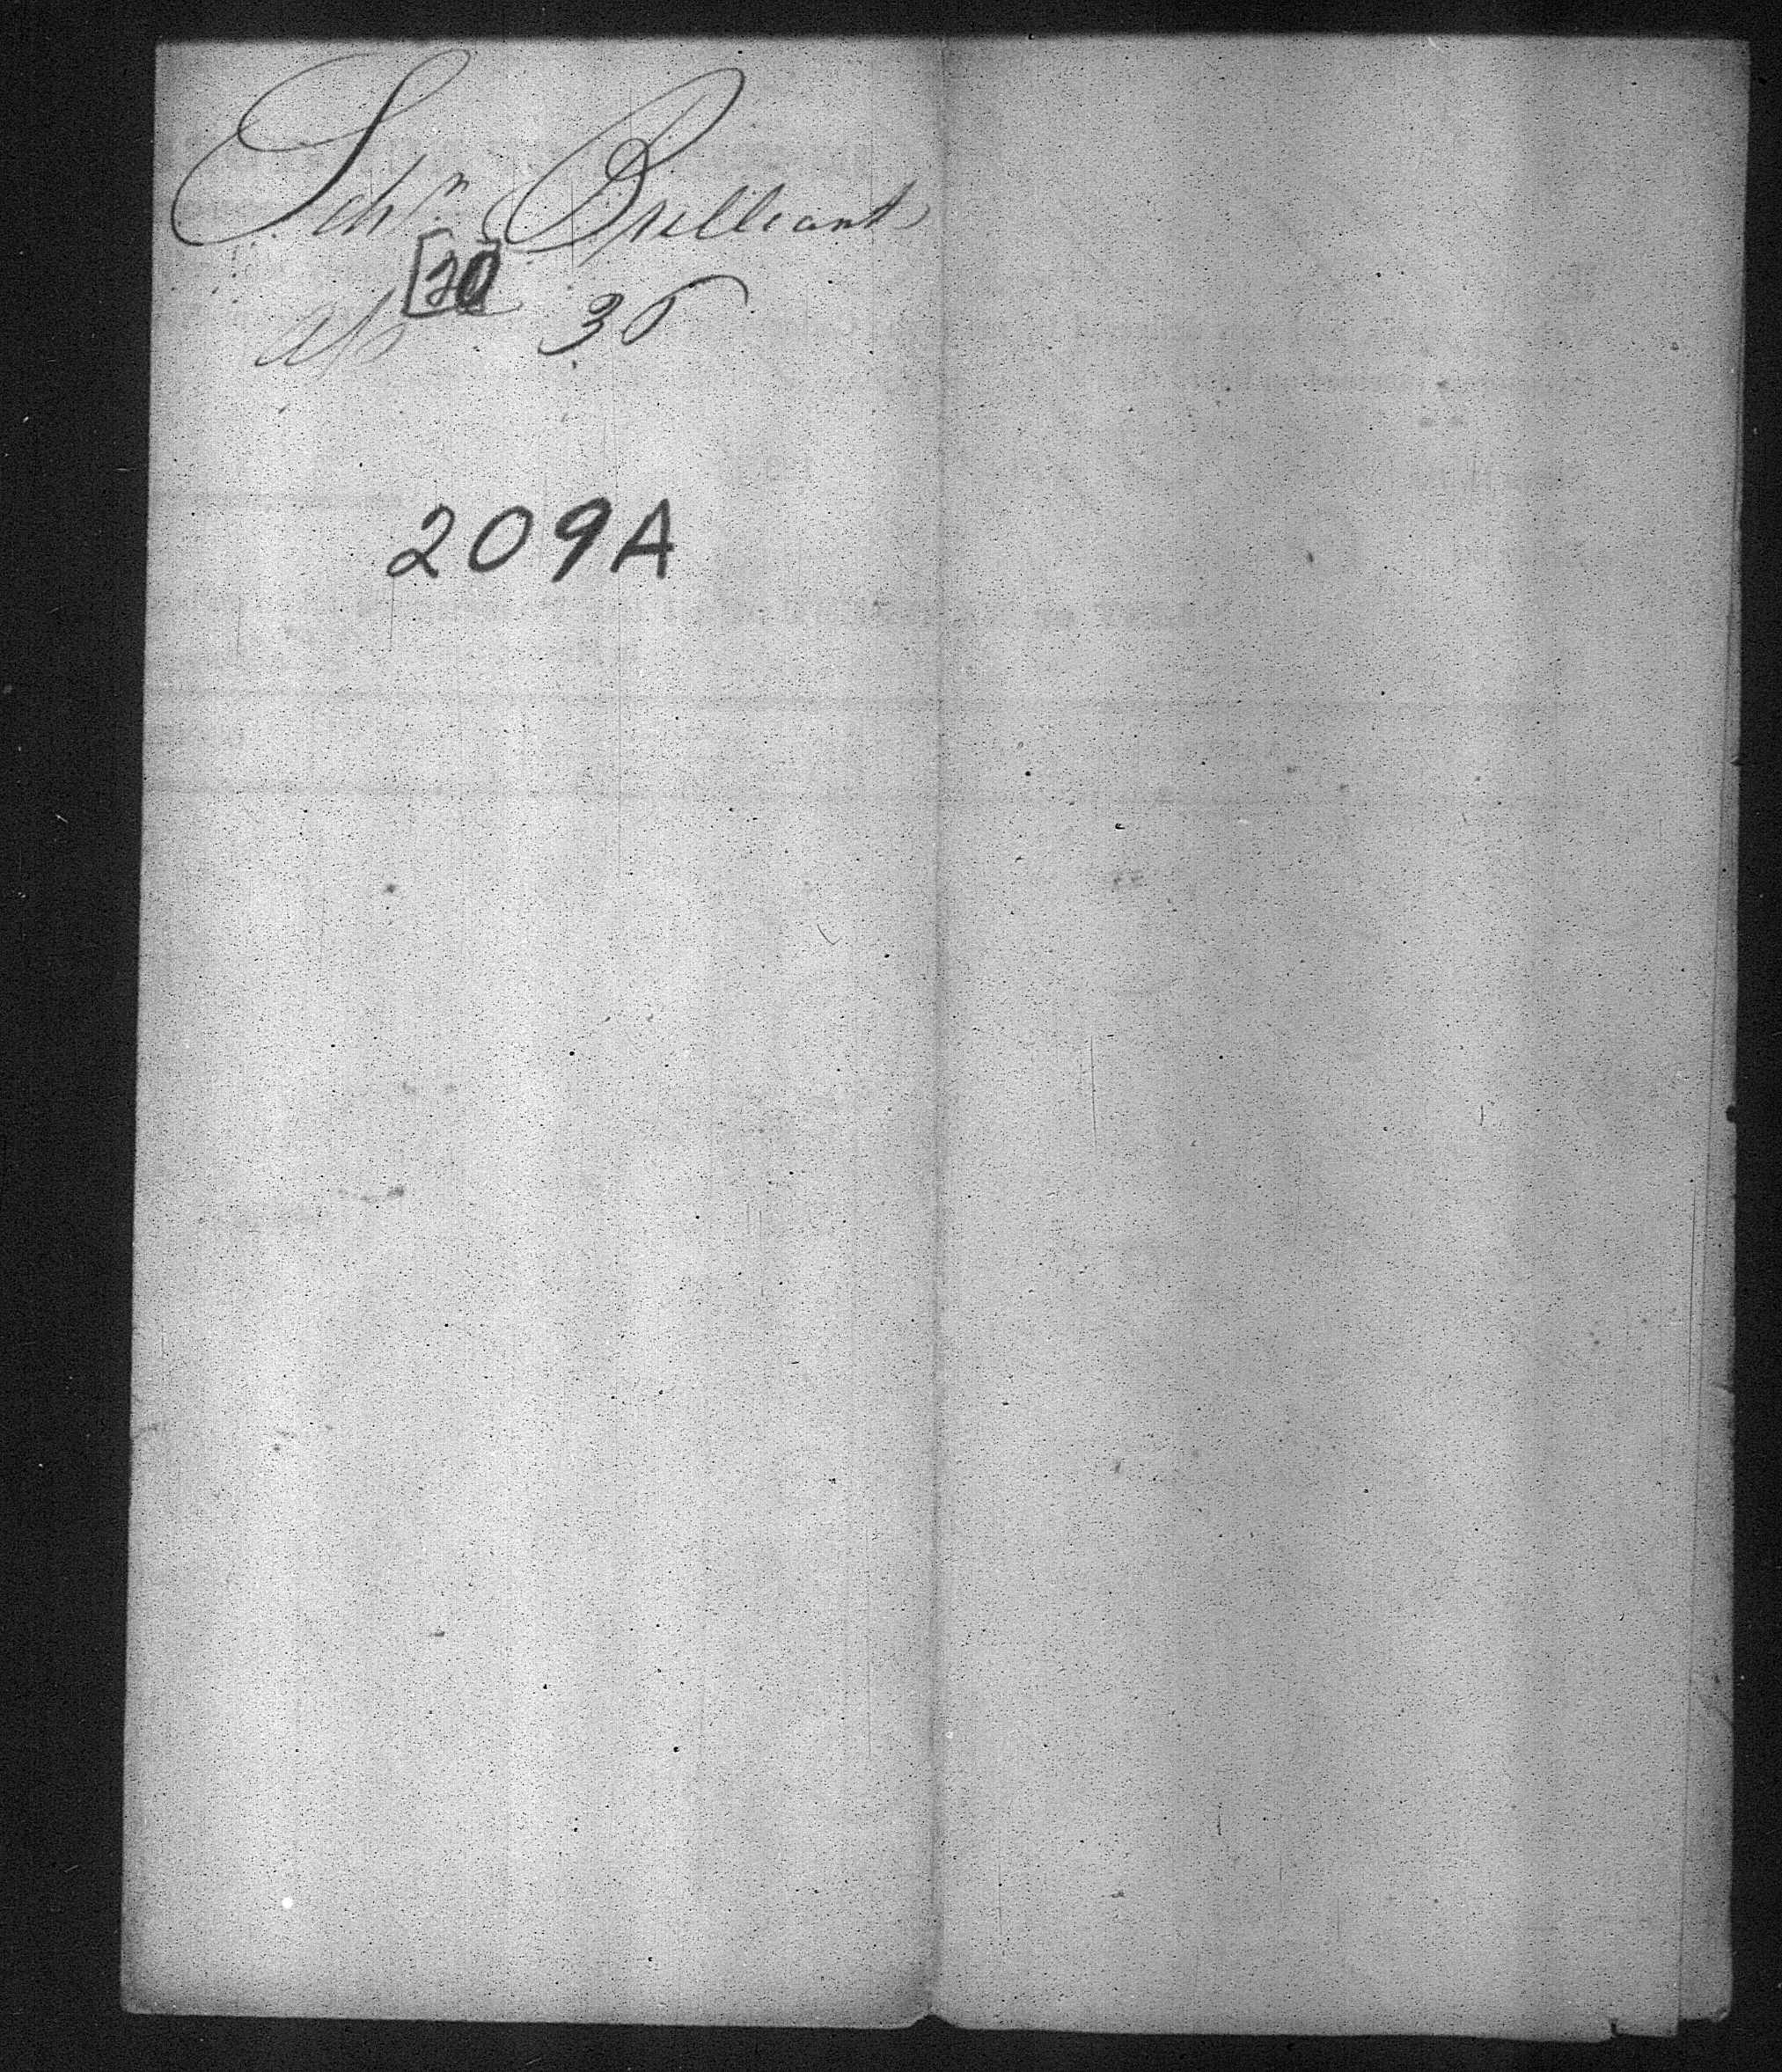 Schr. Brilliant
[20
30
209A